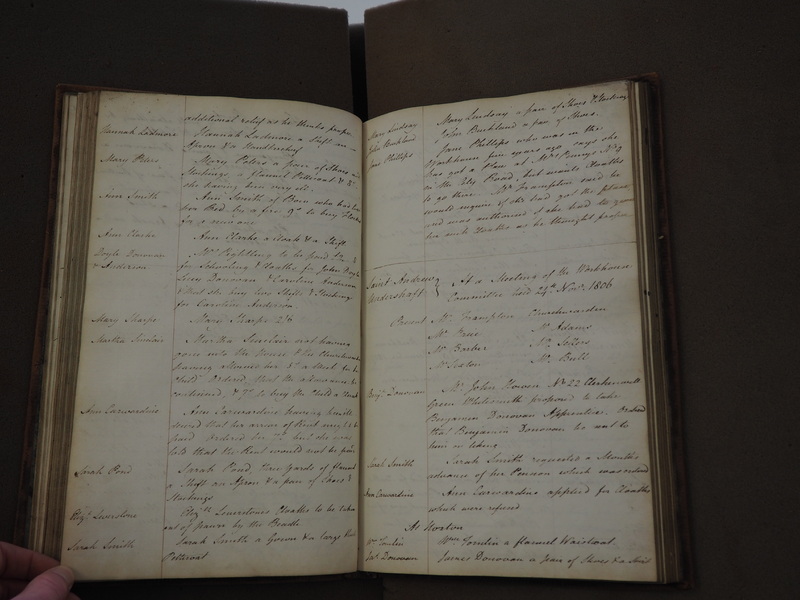 additional relief as he thinks proper
Hannah Ladmore Hannah Ladmore a Shift an
Apron & a Handkerchief
Mary Peters Mary Peters a pair of Shoes and
Stockings, a flannel Petticoat &
she having been very ill.
Ann Smith Ann Smith of Bow who had
her Bed by a fire to buy
for a new one
Ann Clarke Ann Clarke, a Cloak & a Shift
Doyle Donovan Mrs to be paid
& Anderson for Schooling & Cloaths for John Doyle
Donovan & Caroline Anderson
& that she buy two Shifts & Stockings
for Caroline Anderson
Mary Sharpe Mary Sharpe
Martha Sinclair Martha Sinclair not having
gone into the House & the Churchwarden
having allowed her a Week for her
Child Ordered, that the allowance be
continued, & to buy the Child a
Ann Carwardine Ann Carwardine having
that her arrear of Rent
paid Ordered her but she was
told that the Rent would not be paid
Sarah Pond Sarah Pond, three yards of flannel
a Shift an Apron & a pair of Shoes &
Stockings
Elizth Leverstone Elizth Leverstone's Cloaths to be taken
out of pawn by the Beadle
Sarah Smith Sarah Smith a Gown & a large
Petticoat
Mary Lindsay Mary Lindsay a pair of Shoes & Stockings
John Buckland John Buckland a pair of Shoes
Jane Phillips Jane Phillips who was in the
Workhouse five years ago says she
has got a Place at Mrs No 9
in the City Road, but wants Cloaths
to go there. Mr Frampton said he
would enquire if she had got the place
and was authorized if she had to give
her such Cloaths as he thought proper
Saint Andrew At a Meeting of the Workhouse
Undershaft Committee held 24th Novr 1806
Present Mr Frampton Churchwarden
Mr Mr Adams
Mr Barber Mr
Mr Sexton Mr Bull
Benjn Donovan Mr John No 22 Clerkenwell
Green Whitesmith proposed to take
Benjamin Donovan Apprentice. Ordered
that Benjamin Donovan be sent to
him on liking
Sarah Smith Sarah Smith requested a Months
advance of her Pension which was ordered
Ann Carwardine Ann Carwardine applied for Cloaths
which were refused
At Hoxton
Wm Tomlin Wm Tomlin a flannel Waistcoat
Jas Donovan James Donovan a pair of Shoes & a Shirt